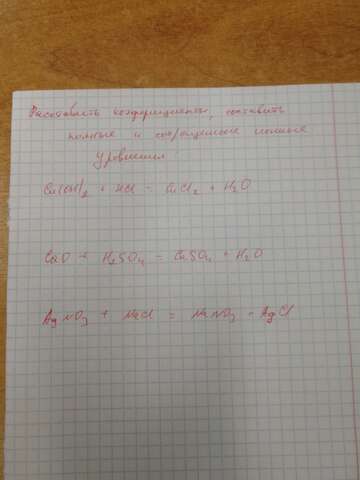 Расставить коэффициенты, составить
полные и сокращенные ионные
уравнения
Cu(OH)₂ + HCl = CuCl₂ + H₂O
CuO + H₂SO₄ = CuSO₄ + H₂O
AgNO₃ + NaCl = NaNO₃ + AgCl